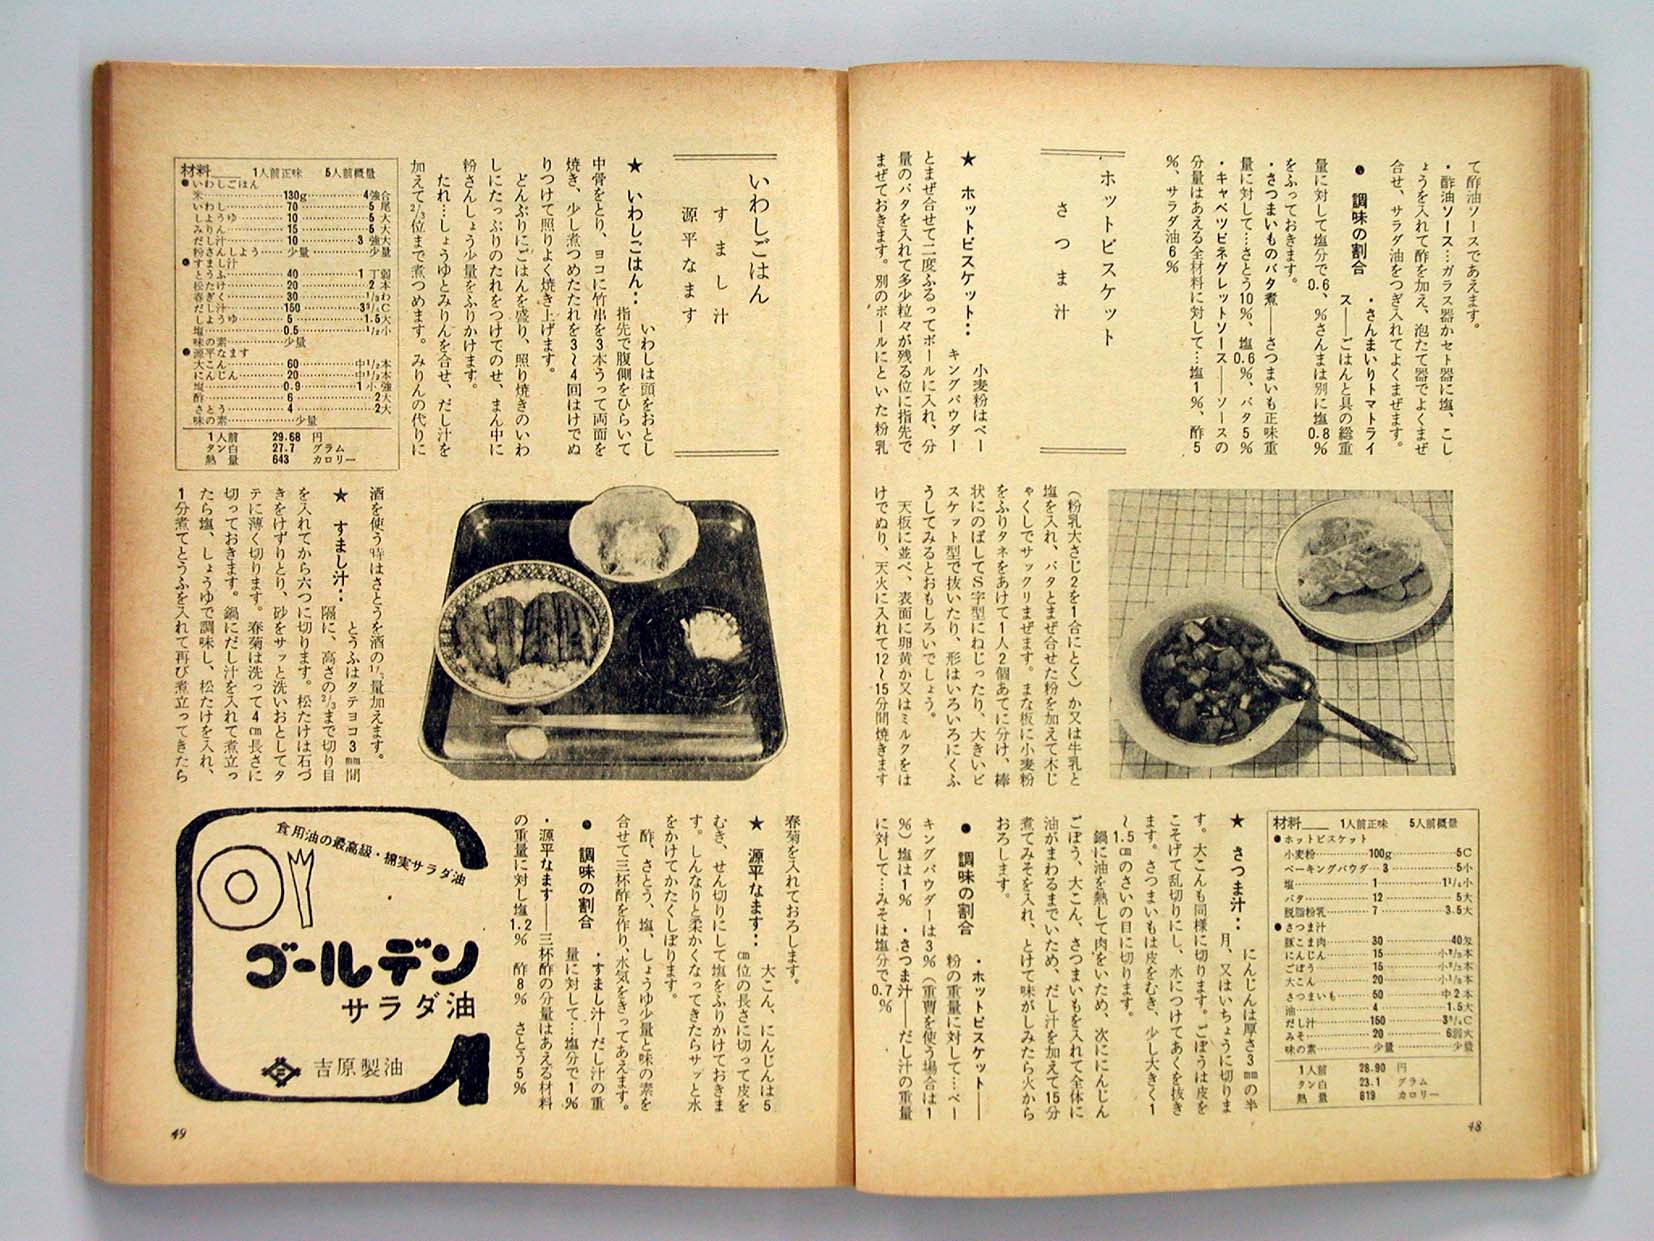 て酢油ソースであえます。
・酢油ソース…ガラス器かセト器に塩、こし
ょうを入れて酢を加え、泡たて器でよくまぜ
合せ、サラダ油をつぎ入れてよくまぜます。
● 調味の割合
・さんまいりトマトライ
ス――ごはんと具の総重
量に対して塩分で0.6%、さんまは別に塩0.8%
をふっておきます。
・さつまいものバタ煮――さつまいも正味重
量に対して…さとう10%、塩0.6%、バタ5%
・キャベツビネグレットソース――ソースの
分量はあえる全材料に対して…塩1%、酢5
%、サラダ油6%
ホットビスケット
さつま汁
★ ホットビスケット…
小麦粉はベー
キングパウダー
とまぜ合せて二度ふるってボールに入れ、分
量のバタを入れて多少粒々が残る位に指先で
まぜておきます。別のボールにといた粉乳
(粉乳大さじ2を1合にとく)か又は牛乳と
塩を入れ、バタとまぜ合せた粉を加えて木じ
ゃくしでサックリまぜます。まな板に小麦粉
をふりタネをあけて1人2個あてに分け、棒
状にのばしてS字型にねじったり、大きいビ
スケット型で抜いたり、形はいろいろにくふ
うしてみるとおもしろいでしょう。
天板に並べ、表面に卵黄か又はミルクをは
けでぬり、天火に入れて12〜15分間焼きます
材料 1人前正味 5人前概量
●ホットビスケット
小麦粉 100g 5C
ベーキングパウダ 3 5小
塩 1 1¼小
バタ 12 5大
脱脂粉乳 7 3.5大
●さつま汁
豚こま肉 30 40匁
にんじん 15 小
ごぼう 15 小
大こん 20 小
さつまいも 50 中2本
油 4 1.5大
だし汁 150 3¾C
みそ 20 6弱大
味の素 少量 少量
1人前 28.90 円
タン白 23.1 グラム
熱量 619 カロリー
★ さつま汁…
にんじんは厚さ3mmの半
月、又はいちょうに切りま
す。大こんも同様に切ります。ごぼうは皮を
こそげて乱切りにし、水につけてあくを抜き
ます。さつまいもは皮をむき、少し大きく1
〜1.5cmのさいの目に切ります。
鍋に油を熱して肉をいため、次ににんじん
ごぼう、大こん、さつまいもを入れて全体に
油がまわるまでいため、だし汁を加えて15分
煮てみそを入れ、とけて味がしみたら火から
おろします。
● 調味の割合
・ホットビスケット――
粉の重量に対して…ベー
キングパウダーは3%(重曹を使う場合は1
%)塩は1% ・さつま汁――だし汁の重量
に対して…みそは塩分で0.7%
48
いわしごはん
すまし汁
源平なます
★ いわしごはん…
いわしは頭をおとし
指先で腹側をひらいて
中骨をとり、ヨコに竹串を3本うって両面を
焼き、少し煮つめたたれを3〜4回はけでぬ
りつけて照りよく焼き上げます。
どんぶりにごはんを盛り、照り焼きのいわ
しにたっぷりのたれをつけてのせ、まん中に
粉さんしょう少量をふりかけます。
たれ…しょうゆとみりんを合せ、だし汁を
加えて⅔位まで煮つめます。みりんの代りに
材料 1人前正味 5人前概量
●いわしごはん
米 130g 4強合
いわし 70 5尾
しょうゆ 10 5大
みりん 15 5大
だし汁 10 3強大
粉さんしょう 少量 少量
●すまし汁
とうふ 40 1弱丁
松たけ 20 2本
春ぎく 30 わ
だし汁 150 3¾C
しょうゆ 5 1.5大
塩 0.5 ½小
味の素 少量
●源平なます
大こん 60 中½本
にんじん 20 中
塩 0.9 1強小
酢 6 2大
さとう 4 2大
味の素 少量
1人前 29.68 円
タン白 27.7 グラム
熱量 643 カロリー
酒を使う時はさとうを酒の量加えます。
★ すまし汁…
とうふはタテヨコ3mm間
隔に、高さの⅔まで切り目
を入れてから六つに切ります。松たけは石づ
きをけずりとり、砂をサッと洗いおとしてタ
テに薄く切ります。春菊は洗って4cm長さに
切っておきます。鍋にだし汁を入れて煮立っ
たら塩、しょうゆで調味し、松たけを入れ、
1分煮てとうふを入れて再び煮立ってきたら
春菊を入れておろします。
★ 源平なます…
大こん、にんじんは5
cm位の長さに切って皮を
むき、せん切りにして塩をふりかけておきま
す。しんなりと柔かくなってきたらサッと水
をかけてかたくしぼります。
酢、さとう、塩、しょうゆ少量と味の素を
合せて三杯酢を作り、水気をきってあえます。
● 調味の割合
・すまし汁―だし汁の重
量に対して…塩分で1%
・源平なます――三杯酢の分量はあえる材料
の重量に対し塩1.2% 酢8% さとう5%
食用油の最高級・綿実サラダ油
ゴールデン
サラダ油
吉原製油
49